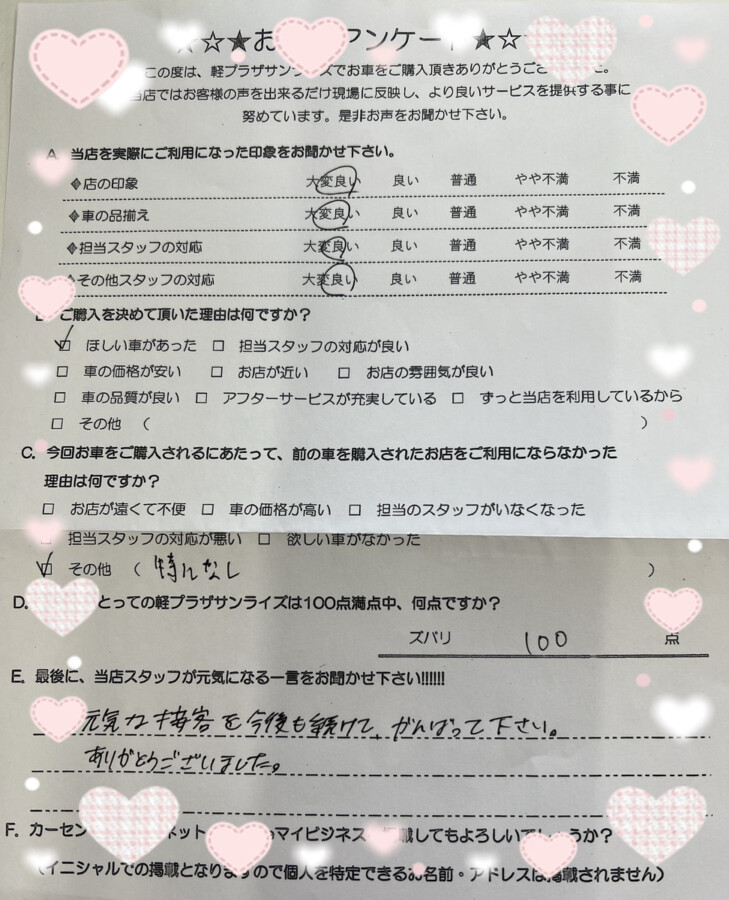 ☆★お アンケート★☆
この度は、軽プラザサンライズでお車をご購入頂きありがとうござ 。
当店ではお客様の声を出来るだけ現場に反映し、より良いサービスを提供する事に
努めています。是非お声をお聞かせ下さい。
A 当店を実際にご利用になった印象をお聞かせ下さい。
◈店の印象 大変良い 良い 普通 やや不満 不満
◈車の品揃え 大変良い 良い 普通 やや不満 不満
◈担当スタッフの対応 大変良い 良い 普通 やや不満 不満
その他スタッフの対応 大変良い 良い 普通 やや不満 不満
ご購入を決めて頂いた理由は何ですか？
☑ ほしい車があった □ 担当スタッフの対応が良い
□ 車の価格が安い □ お店が近い □ お店の雰囲気が良い
□ 車の品質が良い □ アフターサービスが充実している □ ずっと当店を利用しているから
□ その他 （ ）
C. 今回お車をご購入されるにあたって、前の車を購入されたお店をご利用にならなかった
理由は何ですか？
□ お店が遠くて不便 □ 車の価格が高い □ 担当のスタッフがいなくなった
担当スタッフの対応が悪い □ 欲しい車がなかった
☑ その他 （ 特になし ）
D. とっての軽プラザサンライズは100点満点中、何点ですか？
ズバリ 100 点
E. 最後に、当店スタッフが元気になる一言をお聞かせ下さい!!!!!!
元気な接客を今後も続けて、がんばって下さい。
ありがとうございました。
F. カーセン ネット マイビジネス 載してもよろしいでしょうか？
（イニシャルでの掲載となりますので個人を特定できるお名前・アドレスは掲載されません）